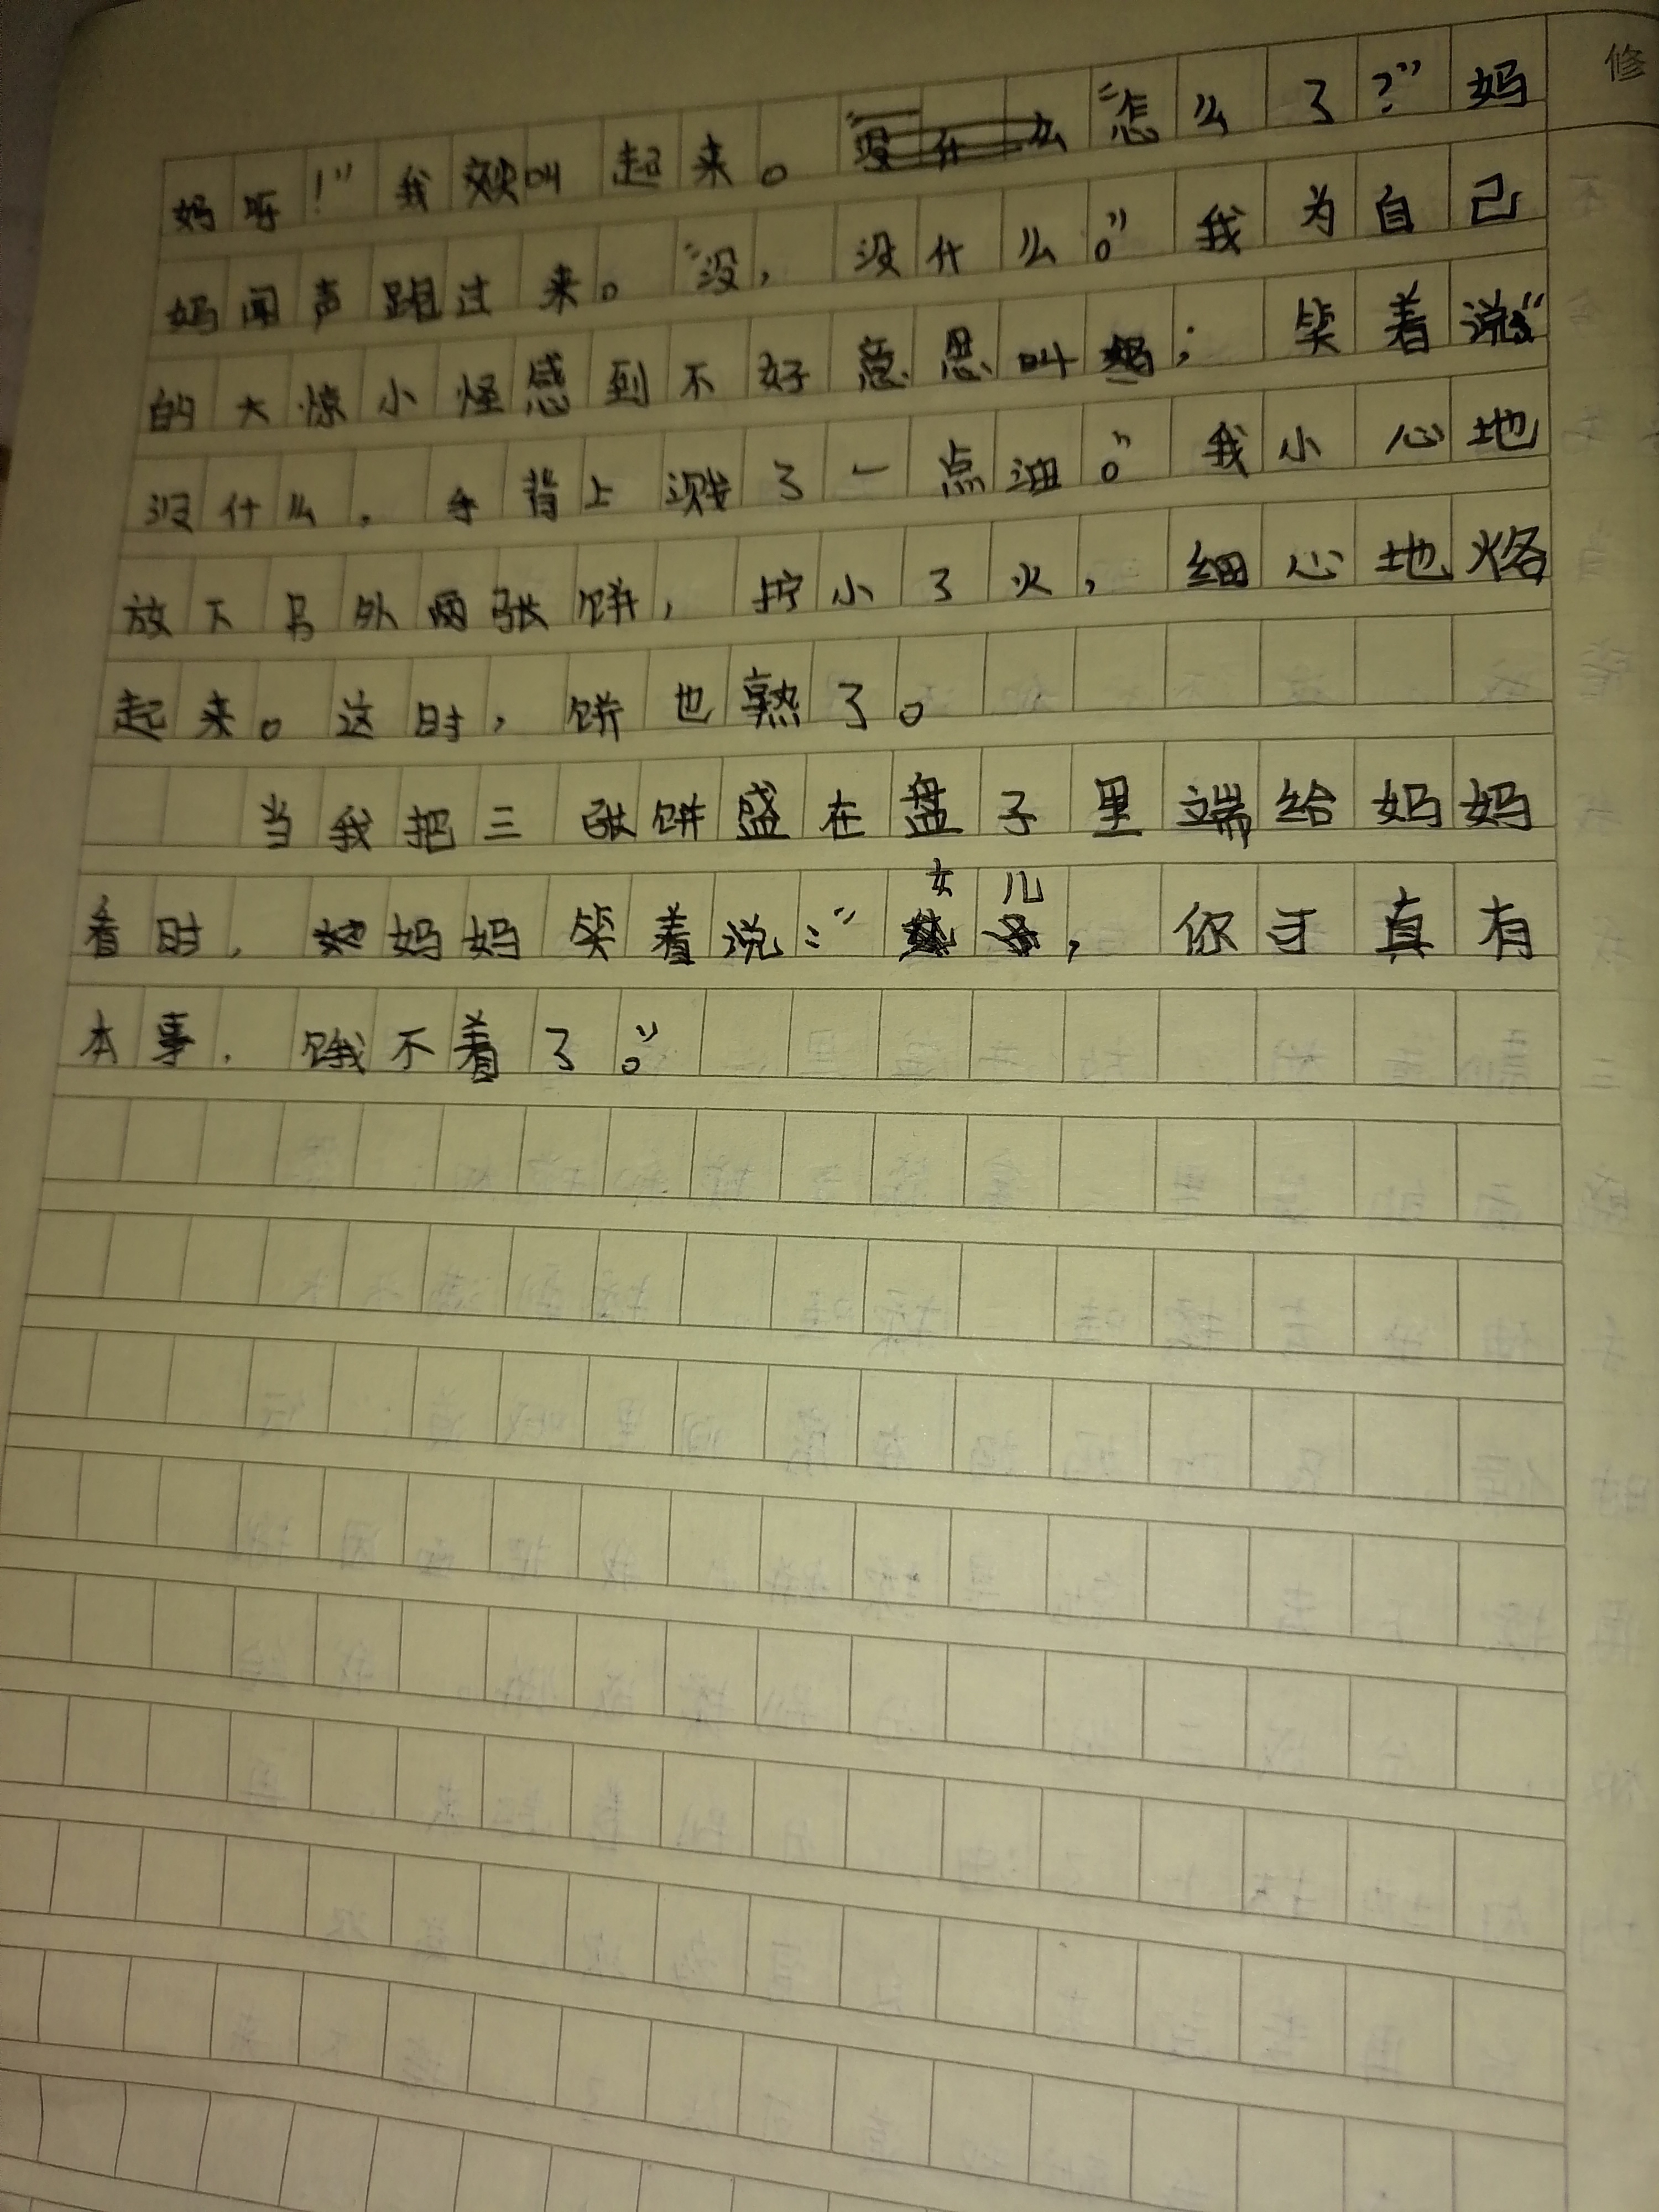 修
妈呀！”我叫起来。“怎么了？”妈
妈闻声跑过来。“没，没什么。”我为自己
的大惊小怪感到不好意思叫；笑着说“
没什么，手背上溅了一点油。”我小心地
放下另外两张饼，拧小了火，细心地烙
起来。这时，饼也熟了。
当我把三张饼盛在盘子里端给妈妈
看时，妈妈笑着说：“女儿，你可真有
本事，饿不着了。”